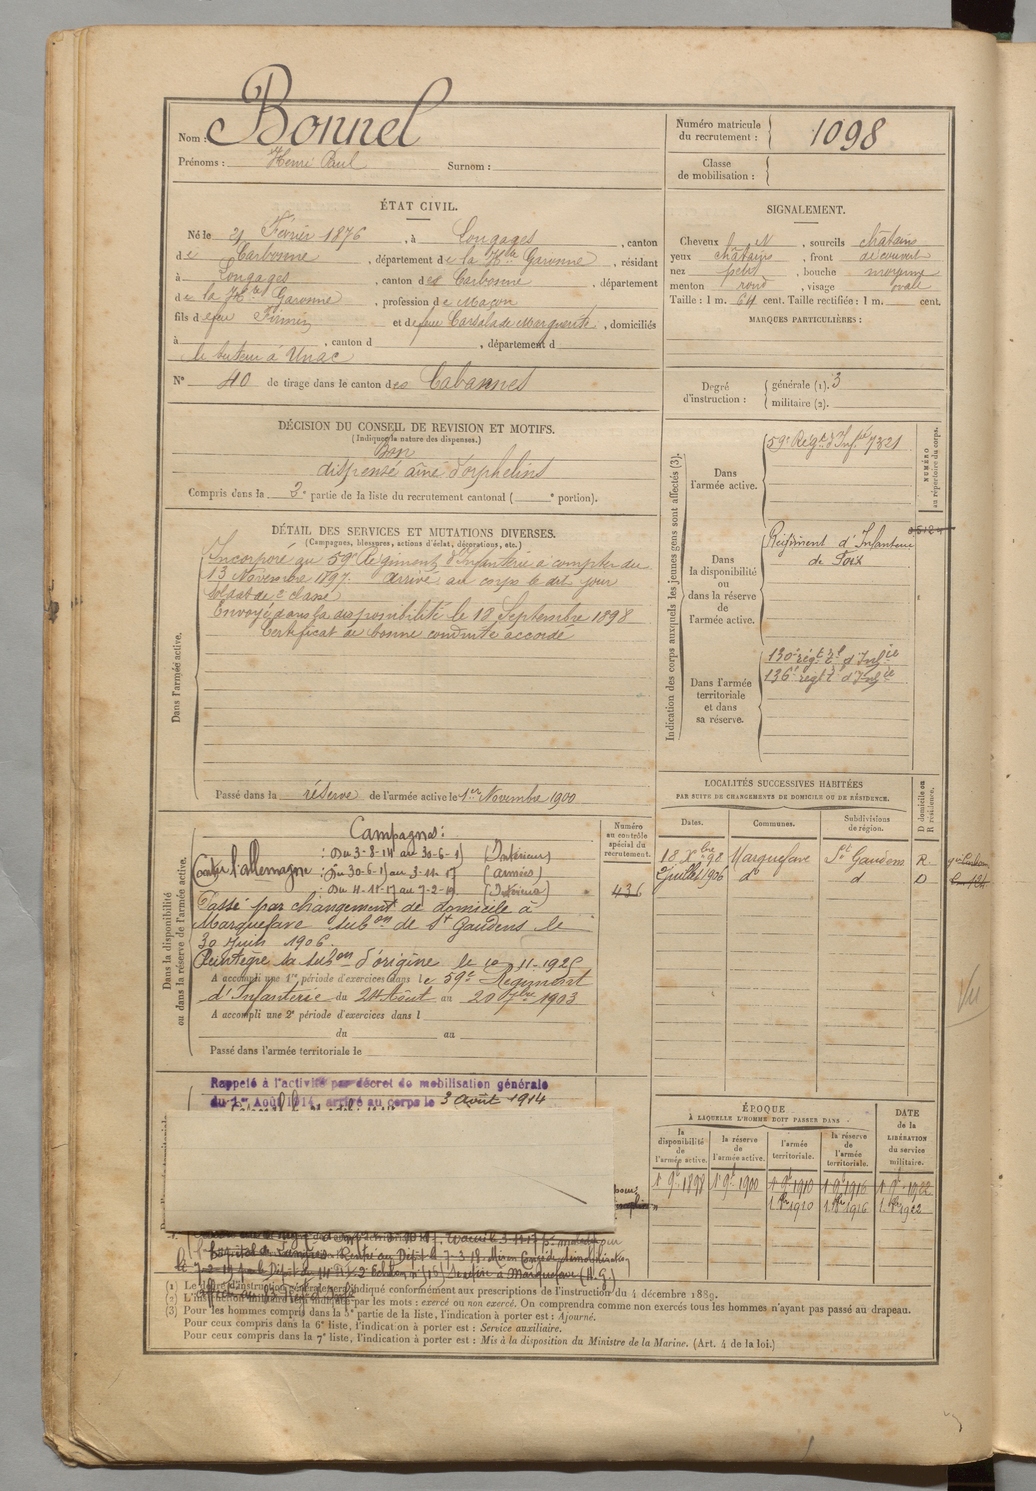 Nom : Bonnel
Prénoms : Henri Paul Surnom :
Numéro matricule du recrutement : 1098
Classe de mobilisation :
ÉTAT CIVIL.
Né le 21 Février 1876, à Longages, canton
de Carbonne, département de la Hte Garonne, résidant
à Longages, canton de Carbonne, département
de la Hte Garonne, profession de Maçon
fils de feu Firmin et de feue Marguerite, domiciliés
à , canton d , département d
le tuteur à Unac
N° 40 de tirage dans le canton des Cabannes
SIGNALEMENT.
Cheveux N , sourcils châtains
yeux châtains , front découvert
nez petit , bouche moyenne
menton rond , visage ovale
Taille : 1 m. 64 cent. Taille rectifiée : 1 m. cent.
MARQUES PARTICULIÈRES :
Degré d'instruction : générale (1). 3
militaire (2).
DÉCISION DU CONSEIL DE REVISION ET MOTIFS.
(Indiquer la nature des dispenses.)
Bon
dispensé aîné d'orphelins
Compris dans la 2e partie de la liste du recrutement cantonal ( e portion).
DÉTAIL DES SERVICES ET MUTATIONS DIVERSES.
(Campagnes, blessures, actions d'éclat, décorations, etc.)
Dans l'armée active.
Incorporé au 59e Régiment d'Infanterie à compter du
13 Novembre 1897. arrivé au corps le dit jour
Soldat de 2e classe
Envoyé dans la disponibilité le 18 Septembre 1898
Certificat de bonne conduite accordé
Passé dans la réserve de l'armée active le 1er Novembre 1900
Indication des corps auxquels les jeunes gens sont affectés (3).
NUMÉRO au répertoire du corps.
Dans l'armée active.
59e Régt d'Infie 7321
Dans la disponibilité ou dans la réserve de l'armée active.
Régiment d'Infanterie
de Foix
Dans l'armée territoriale et dans sa réserve.
130e régt tal d'Infie
136e régt t d'Infie
LOCALITÉS SUCCESSIVES HABITÉES
PAR SUITE DE CHANGEMENTS DE DOMICILE OU DE RÉSIDENCE.
Dates. Communes. Subdivisions de région. D domicile ou R résidence.
18 Xbre 98 Marquefave St Gaudens R.
2 Juillet 1906 do d D
Vu
Dans la disponibilité ou dans la réserve de l'armée active.
Numéro au contrôle spécial du recrutement.
436
Campagnes :
Contre l'allemagne : Du 3-8-14 au 30-6-15 (Intérieur)
: Du 30-6-15 au 3-11-17 (armées)
: Du 4-11-17 au 7-2-19 (Intérieur)
Passé par changement de domicile à
Marquefave subon de St Gaudens le
30 Juin 1906.
Réintègre sa subon d'origine le 10-11-1925
A accompli une 1re période d'exercices dans le 59e Régiment
d'Infanterie du 24 Août au 20 7bre 1903
A accompli une 2e période d'exercices dans l
du au
Passé dans l'armée territoriale le
Rappelé à l'activité par décret de mobilisation générale
du 1er Août 1914, arrivé au corps le 3 août 1914
ÉPOQUE
À LAQUELLE L'HOMME DOIT PASSER DANS
la disponibilité de l'armée active. la réserve de l'armée active. l'armée territoriale. la réserve de l'armée territoriale.
DATE de la LIBÉRATION du service militaire.
1 9e 1898 1 9e 1900 1 9e 1910 1 9e 1916 1 9e 1922
1.8bre 1910 1.8bre 1916 1.8bre 1922
(1) Le degré d'instruction générale sera indiqué conformément aux prescriptions de l'instruction du 4 décembre 1889.
(2) L'instruction militaire sera indiquée par les mots : exercé ou non exercé. On comprendra comme non exercés tous les hommes n'ayant pas passé au drapeau.
(3) Pour les hommes compris dans la 5e partie de la liste, l'indication à porter est : Ajourné.
Pour ceux compris dans la 6e liste, l'indication à porter est : Service auxiliaire.
Pour ceux compris dans la 7e liste, l'indication à porter est : Mis à la disposition du Ministre de la Marine. (Art. 4 de la loi.)